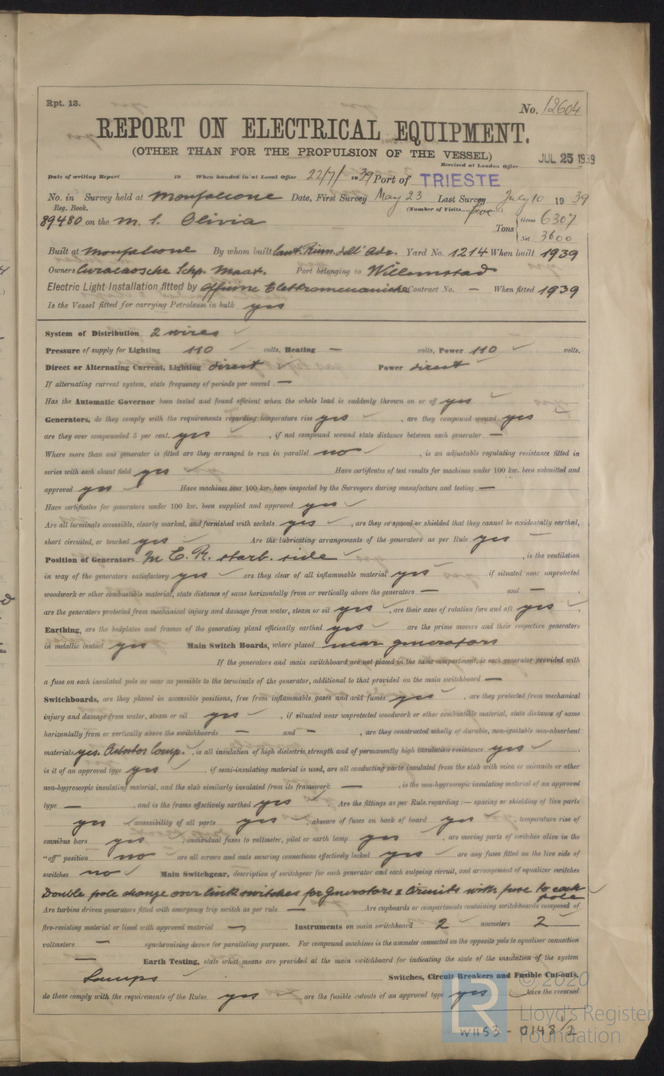 Rpt. 13.
No. 12604
REPORT ON ELECTRICAL EQUIPMENT.
(OTHER THAN FOR THE PROPULSION OF THE VESSEL)
Received at London Office JUL 25 1939
Date of writing Report 19 When handed in at Local Office 22/7/ 1939 Port of TRIESTE
No. in Survey held at Monfalcone Date, First Survey May 23 Last Survey July 10 1939
Reg. Book. (Number of Visits five)
89480 on the M. S. Olivia Tons Gross 6307
Net 3600
Built at Monfalcone By whom built Cant. Riun. dell' Adr. Yard No. 1214 When built 1939
Owners Curacaosche Schp. Maat. Port belonging to Willemstad
Electric Light Installation fitted by Officine Elettromeccaniche Contract No. — When fitted 1939
Is the Vessel fitted for carrying Petroleum in bulk yes
System of Distribution 2 wires
Pressure of supply for Lighting 110 volts, Heating — volts, Power 110 volts.
Direct or Alternating Current, Lighting direct Power direct
If alternating current system, state frequency of periods per second —
Has the Automatic Governor been tested and found efficient when the whole load is suddenly thrown on or off yes
Generators, do they comply with the requirements regarding temperature rise yes , are they compound wound yes
are they over compounded 5 per cent. yes , if not compound wound state distance between each generator —
Where more than one generator is fitted are they arranged to run in parallel no , is an adjustable regulating resistance fitted in
series with each shunt field yes Have certificates of test results for machines under 100 kw. been submitted and
approved yes Have machines over 100 kw. been inspected by the Surveyors during manufacture and testing —
Have certificates for generators under 100 kw. been supplied and approved yes
Are all terminals accessible, clearly marked, and furnished with sockets yes , are they so spaced or shielded that they cannot be accidentally earthed,
short circuited, or touched yes Are the lubricating arrangements of the generators as per Rule yes
Position of Generators M. E. R. starb. side , is the ventilation
in way of the generators satisfactory yes are they clear of all inflammable material yes if situated near unprotected
woodwork or other combustible material, state distance of same horizontally from or vertically above the generators — and —
are the generators protected from mechanical injury and damage from water, steam or oil yes , are their axes of rotation fore and aft yes
Earthing, are the bedplates and frames of the generating plant efficiently earthed yes are the prime movers and their respective generators
in metallic contact yes Main Switch Boards, where placed near generators
If the generators and main switchboard are not placed in the same compartment, is each generator provided with
a fuse on each insulated pole as near as possible to the terminals of the generator, additional to that provided on the main switchboard —
Switchboards, are they placed in accessible positions, free from inflammable gases and acid fumes yes , are they protected from mechanical
injury and damage from water, steam or oil yes , if situated near unprotected woodwork or other combustible material, state distance of same
horizontally from or vertically above the switchboards — and — , are they constructed wholly of durable, non-ignitable non-absorbent
materials yes. Asbestos Comp. , is all insulation of high dielectric strength and of permanently high insulation resistance yes
is it of an approved type yes , if semi-insulating material is used, are all conducting parts insulated from the slab with mica or micanite or other
non-hygroscopic insulating material, and the slab similarly insulated from its framework — , is the non-hygroscopic insulating material of an approved
type — , and is the frame effectively earthed yes Are the fittings as per Rule regarding :— spacing or shielding of live parts
yes , accessibility of all parts yes , absence of fuses on back of board yes , temperature rise of
omnibus bars yes , individual fuses to voltmeter, pilot or earth lamp yes , are moving parts of switches alive in the
"off" position no are all screws and nuts securing connections effectively locked yes are any fuses fitted on the live side of
switches no Main Switchgear, description of switchgear for each generator and each outgoing circuit, and arrangement of equalizer switches
Double pole change over link switches for generators & circuits with fuse to each pole
Are turbine driven generators fitted with emergency trip switch as per rule — Are cupboards or compartments containing switchboards composed of
fire-resisting material or lined with approved material — Instruments on main switchboard 2 ammeters 2
voltmeters — synchronising device for paralleling purposes. For compound machines is the ammeter connected on the opposite pole to equaliser connection
— Earth Testing, state what means are provided at the main switchboard for indicating the state of the insulation of the system
Lamps Switches, Circuit Breakers and Fusible Cut-outs,
do these comply with the requirements of the Rules yes are the fusible cutouts of an approved type yes have the reversed
© 2020
LR
Lloyd's Register
Foundation
W1153 - 0148 1/2